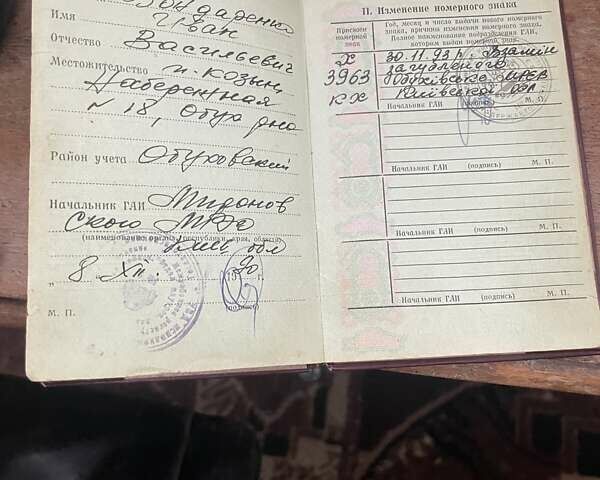 Имя Іван
Отчество Васильевич
Местожительство п. Козын
Набережная
№ 18, Обух р-на
Район учета Обуховский
Начальник ГАИ Миронов
ского МРЭО
(наименование органа, республики, края, области)
обл
„ 8 XII. 1990 г.
М. П. (подпись)
II. Изменение номерного знака
Присвоен номерной знак
Год, месяц и число выдачи нового номерного знака, причина изменения номерного знака. Полное наименование подразделения ГАИ, которым выдан номерной знак.
Х 30.11.93 р. Взамін
загубленого
3963 Обухівське МРЕВ
КХ Київської обл.
Начальник ГАИ (подпись) М. П.
Начальник ГАИ (подпись) М. П.
Начальник ГАИ (подпись) М. П.
Начальник ГАИ (подпись) М. П.